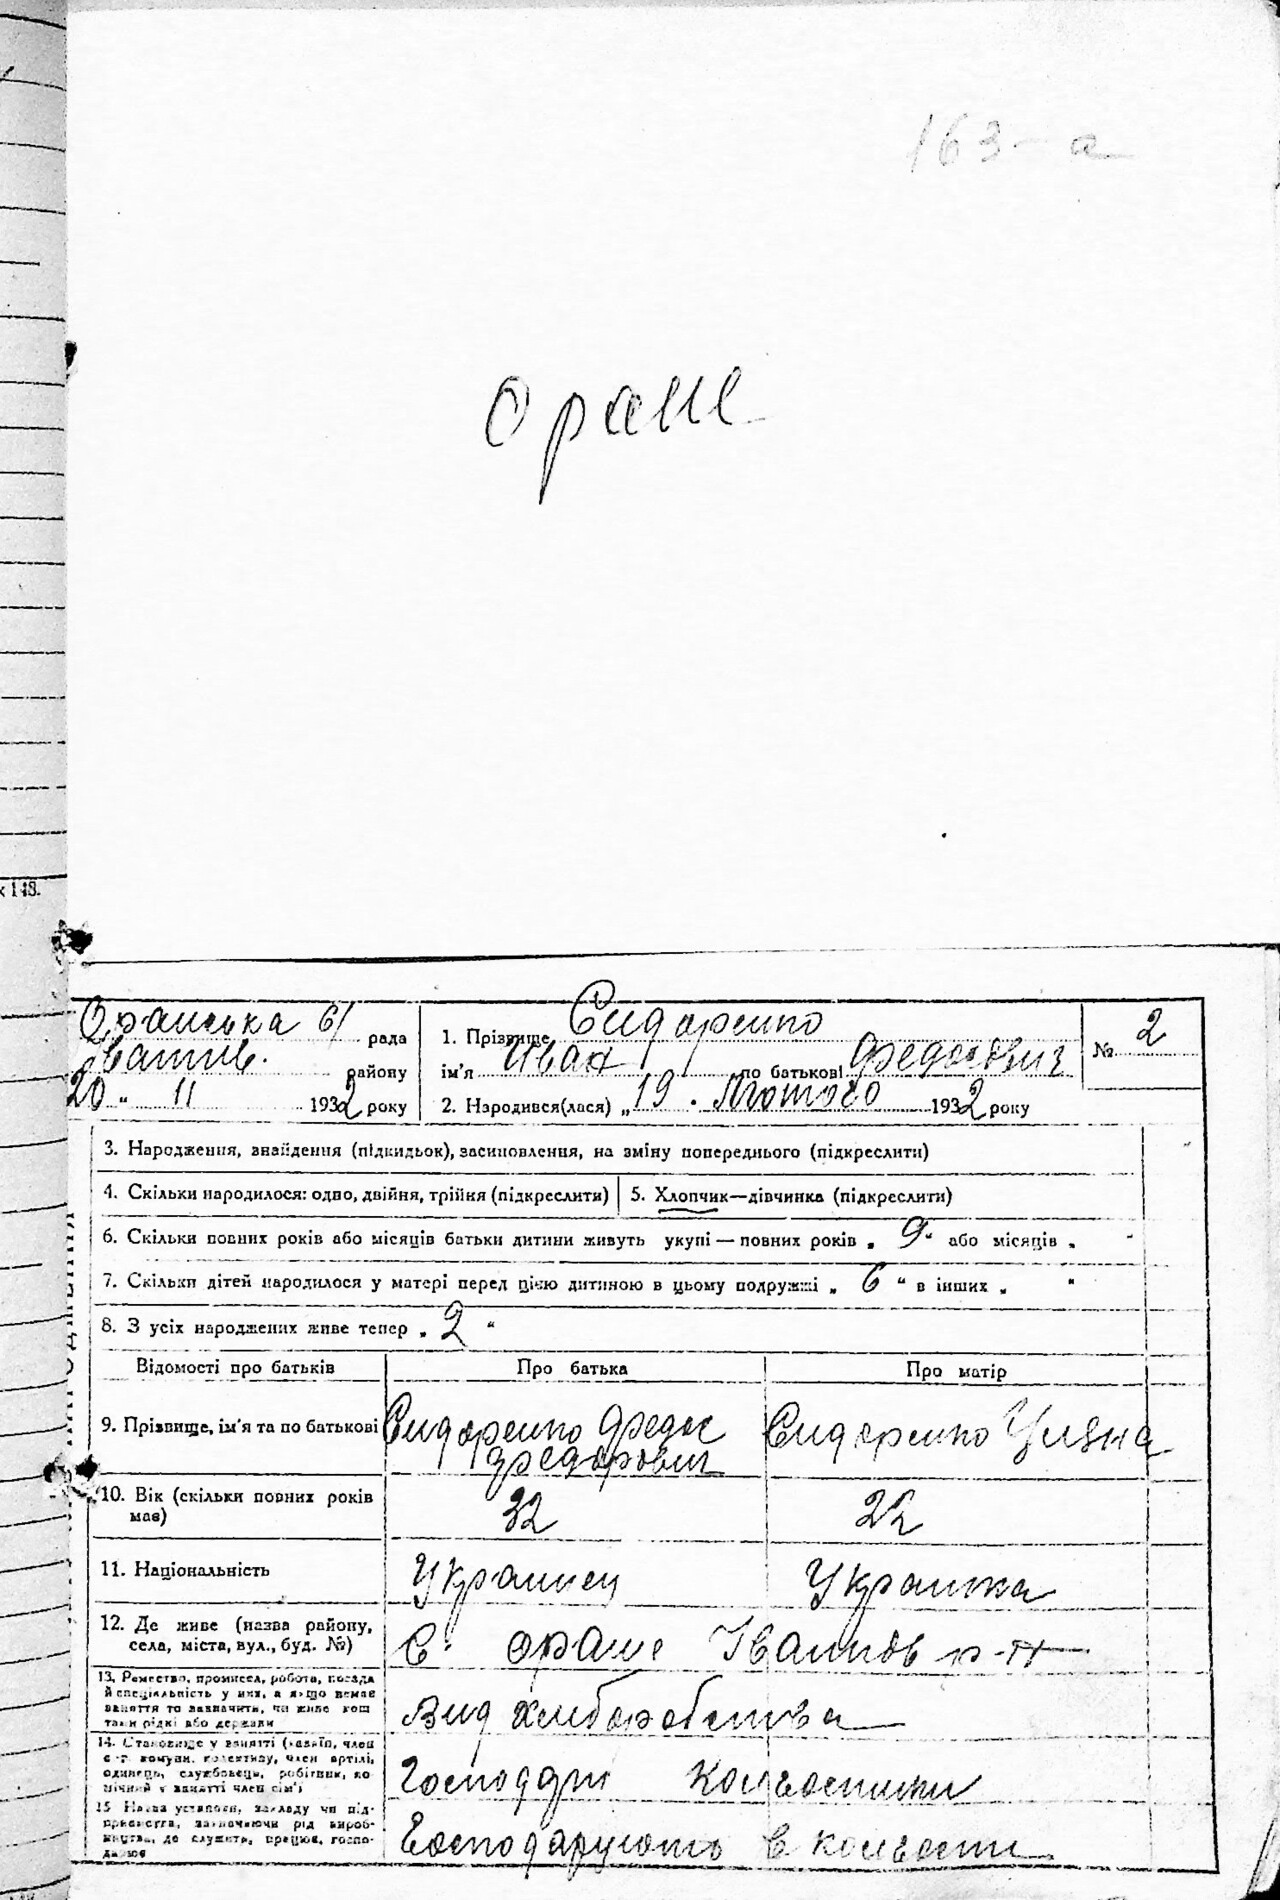 163-а
Оране
к 148.
Оранська с/ рада
Іванків. району
20 " 11 1932 року
1. Прізвище Сидоренко
ім'я Иван по батькові Федосович
2. Народився(лася) „ 19 . Лютого 1932 року
№ 2
3. Народження, знайдення (підкидьок), засиновлення, на зміну попереднього (підкреслити)
4. Скільки народилося: одно, двійня, трійня (підкреслити)
5. Хлопчик—дівчинка (підкреслити)
6. Скільки повних років або місяців батьки дитини живуть укупі — повних років „ 9 “ або місяців „ “
7. Скільки дітей народилося у матері перед цією дитиною в цьому подружжі „ 6 “ в інших „ “
8. З усіх народжених живе тепер „ 2 “
Відомості про батьків Про батька Про матір
9. Прізвище, ім'я та по батькові Сидоренко Федос Сидоренко
Федорович
10. Вік (скільки повних років 32 22
має)
11. Національність Украинец Украинка
12. Де живе (назва району,
села, міста, вул., буд. №) С. Оране Іванков р-н
13. Ремество, промисел, робота, посада
й спеціяльність у них, а якщо немає
заняття то зазначити, чи живе кош
тами рідні або держави Вид хлиборобства
14. Становище у занятті (хазяїн, член
с.-г. комуни, колективу, член артілі,
одинець, службовець, робітник, по
мічний у занятті член сім'ї) Господарі колхозники
15 Назва установи, закладу чи під-
приємства, зазначаючи рід вироб-
ництва, де служить, працює, госпо-
дарює Господарують в колхости